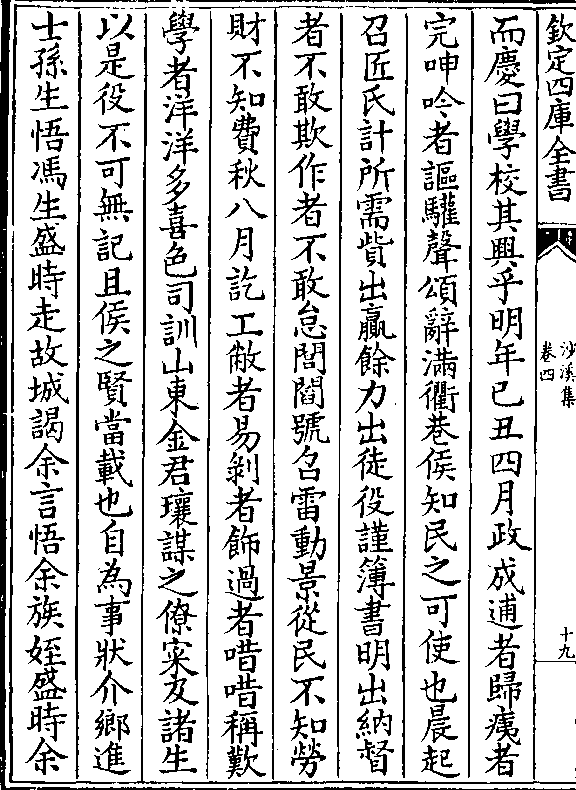 欽定四庫全書
沙溪集
卷四
十九
而慶曰學校其興乎明年已丑四月政成逋者歸痍者
完呻吟者謳驩聲頌辭滿衢巷侯知民之可使也晨起
召匠氏計所需貲出贏餘力出徒役謹簿書明出納督
者不敢欺作者不敢怠閭閻號召雷動景從民不知勞
財不知費秋八月訖工敝者易剝者飾過者唶唶稱歎
學者洋洋多喜色司訓山東金君瓖謀之僚寀友諸生
以是役不可無記且侯之賢當載也自為事狀介鄉進
士孫生悟馮生盛時走故城謁余言悟余族姪盛時余